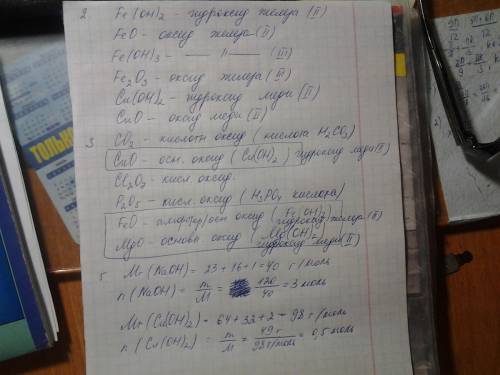 2 Fe(OH)₂ - гидроксид железа (II)
FeO - оксид железа (II)
Fe(OH)₃ - —— || —— (III)
Fe₂O₃ - оксид железа (III)
Cu(OH)₂ - гидроксид меди (II)
CuO - оксид меди (II)
3 CO₂ - кислотн оксид (кислота H₂CO₃)
CuO - осн. оксид (Cu(OH)₂) гидроксид меди (II)
Cl₂O₇ - кисл оксид.
P₂O₅ - кисл. оксид (H₃PO₄ кислота)
FeO - оксид (Fe(OH)₂ гидроксид железа (II)
MgO - основн оксид (Mg(OH)₂ гидроксид меди (II)
5 M(NaOH) = 23 + 16 + 1 = 40 г/моль
n(NaOH) = m/M = 120/40 = 3 моль
Mr(Cu(OH)₂) = 64 + 32 + 2 = 98 г/моль
n(Cu(OH)₂) = m/M = 49 г/98 г/моль = 0,5 моль
ТОЛЬКО